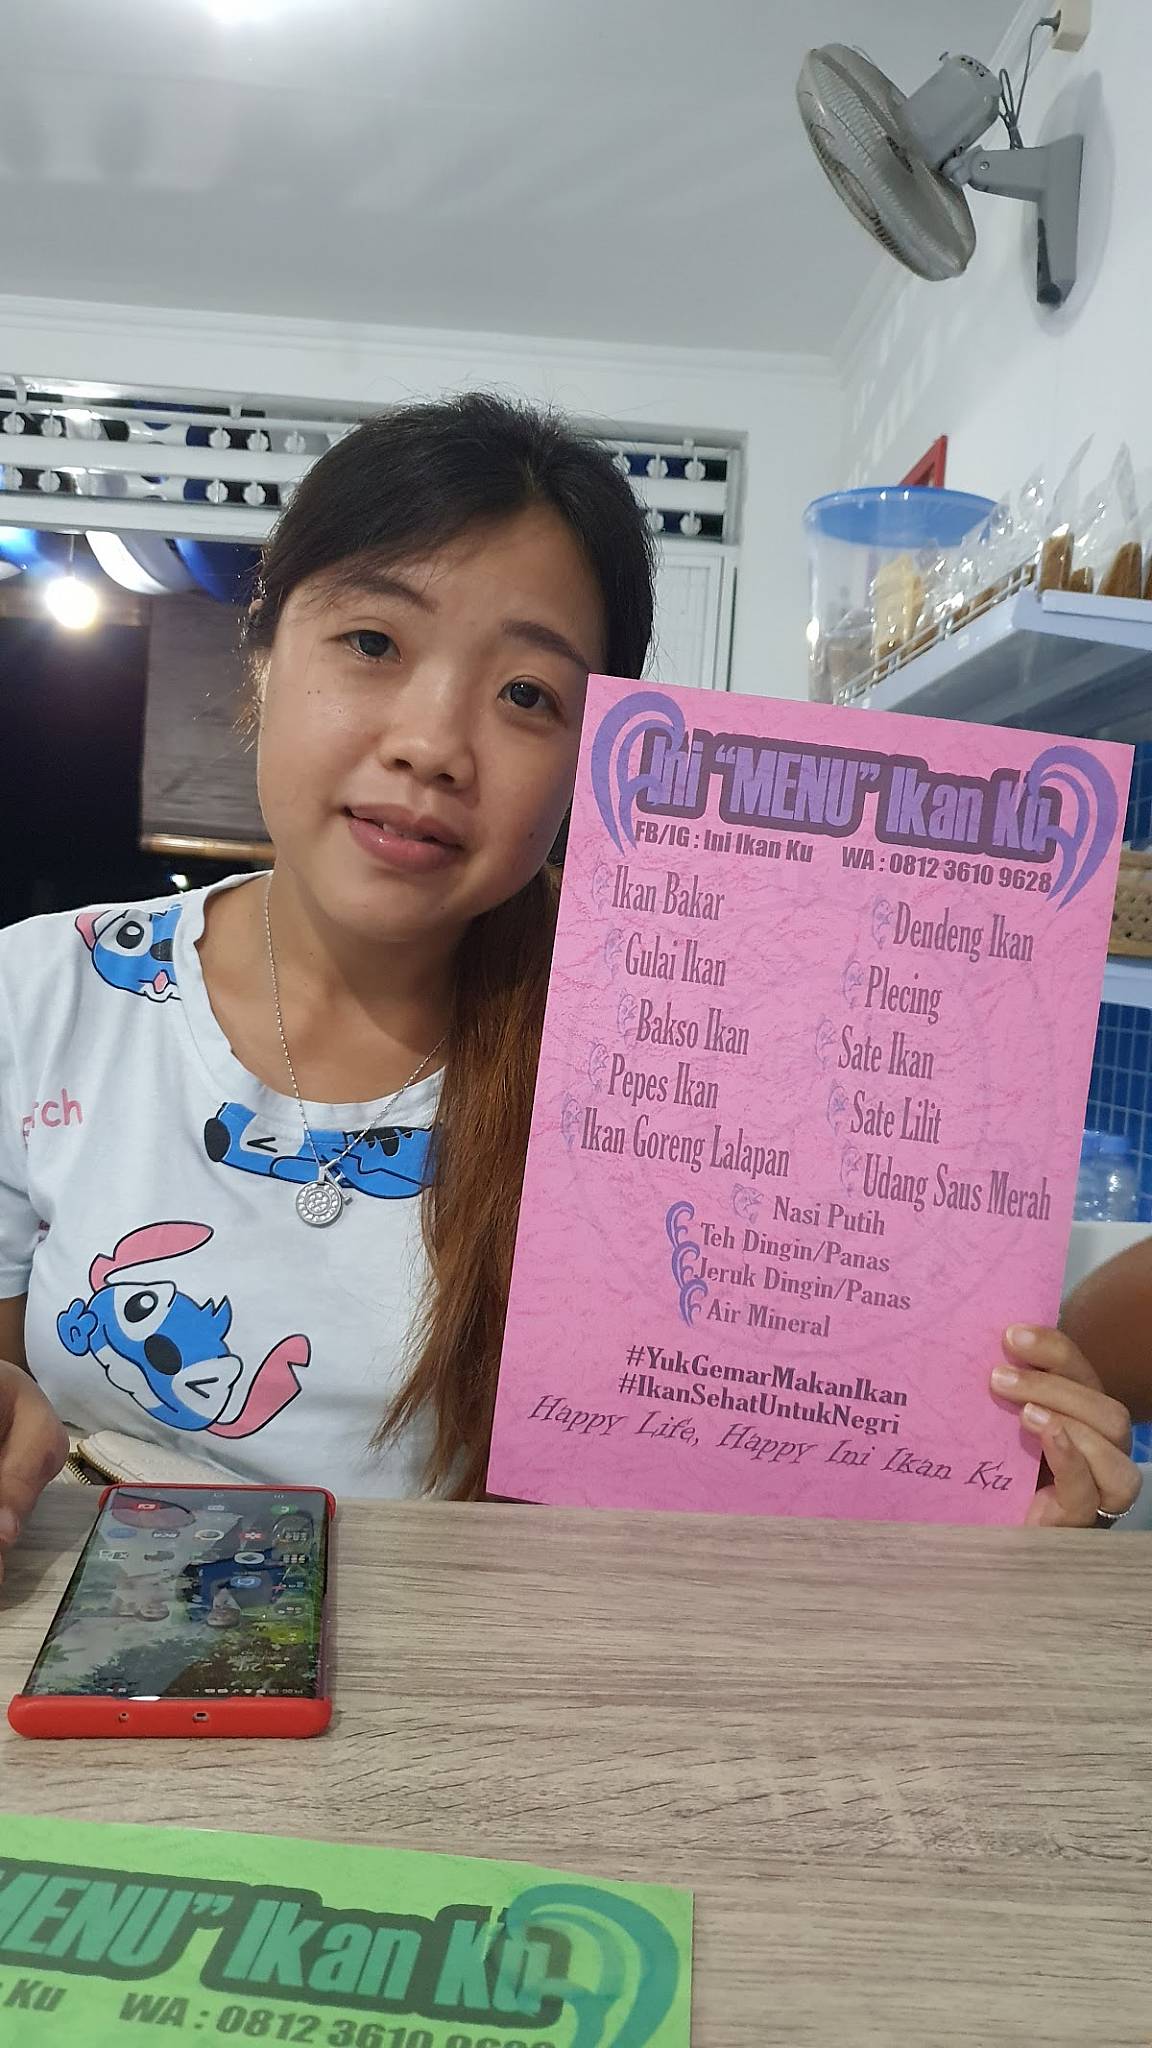 Ini “MENU” Ikan Ku
FB/IG : Ini Ikan Ku WA : 0812 3610 9628
Ikan Bakar
Gulai Ikan
Bakso Ikan
Pepes Ikan
Ikan Goreng Lalapan
Dendeng Ikan
Plecing
Sate Ikan
Sate Lilit
Udang Saus Merah
Nasi Putih
Teh Dingin/Panas
Jeruk Dingin/Panas
Air Mineral
#YukGemarMakanIkan
#IkanSehatUntukNegri
Happy Life, Happy Ini Ikan Ku
MENU” Ikan Ku
Ku WA : 0812 3610 9628